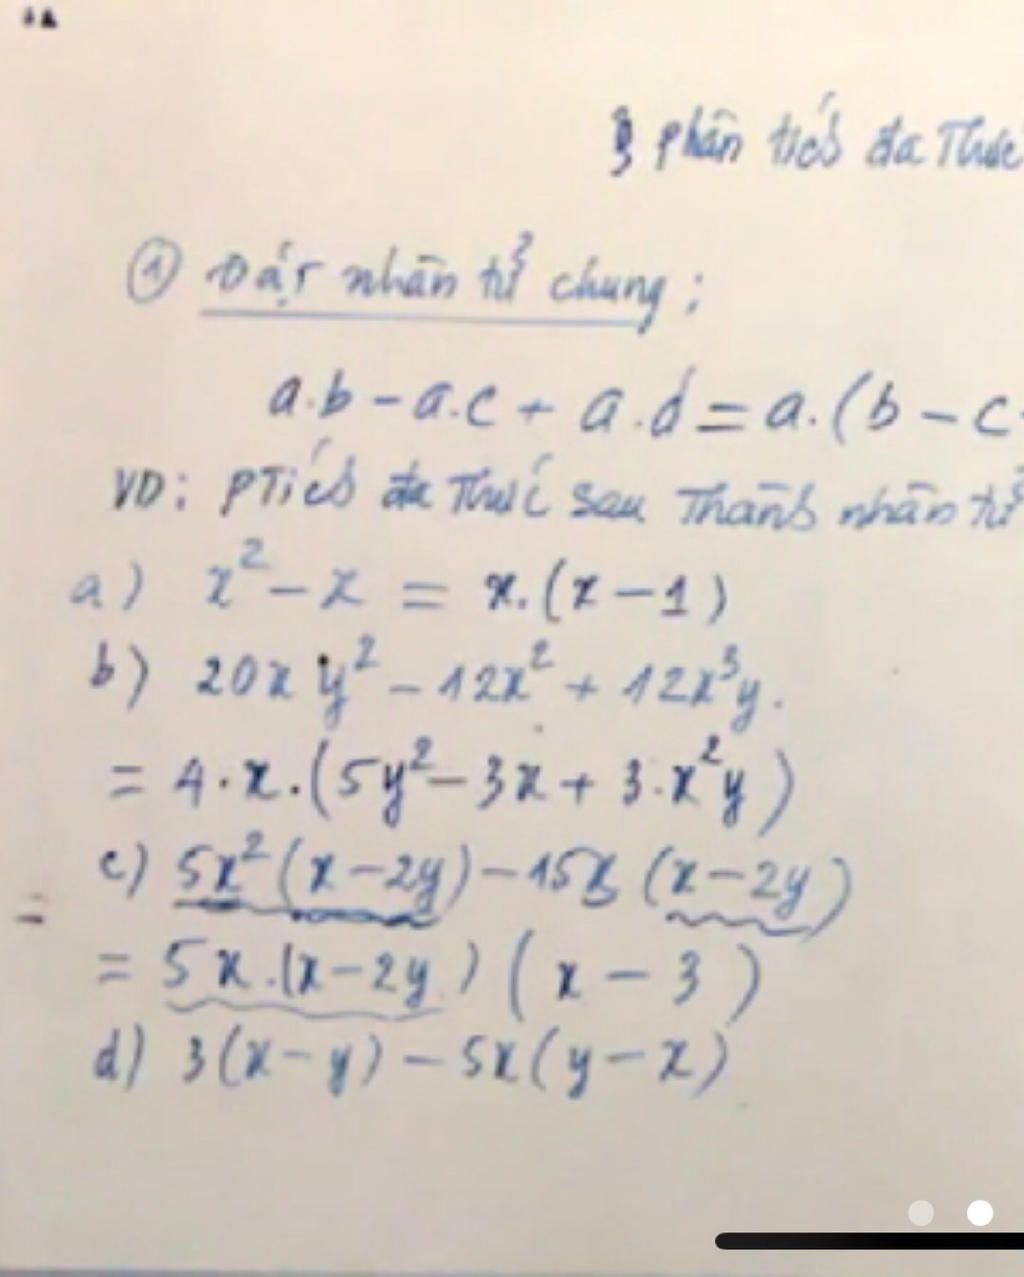 § Phân tích đa Thức
① Đặt nhân tử chung:
a.b - a.c + a.d = a.(b - c
VD: PTích đa Thức sau Thành nhân tử
a) x² - x = x.(x - 1)
b) 20xy² - 12x² + 12x³y.
= 4.x.(5y² - 3x + 3.x²y)
c) 5x²(x - 2y) - 15x(x - 2y)
= 5x.(x - 2y)(x - 3)
d) 3(x - y) - 5x(y - x)